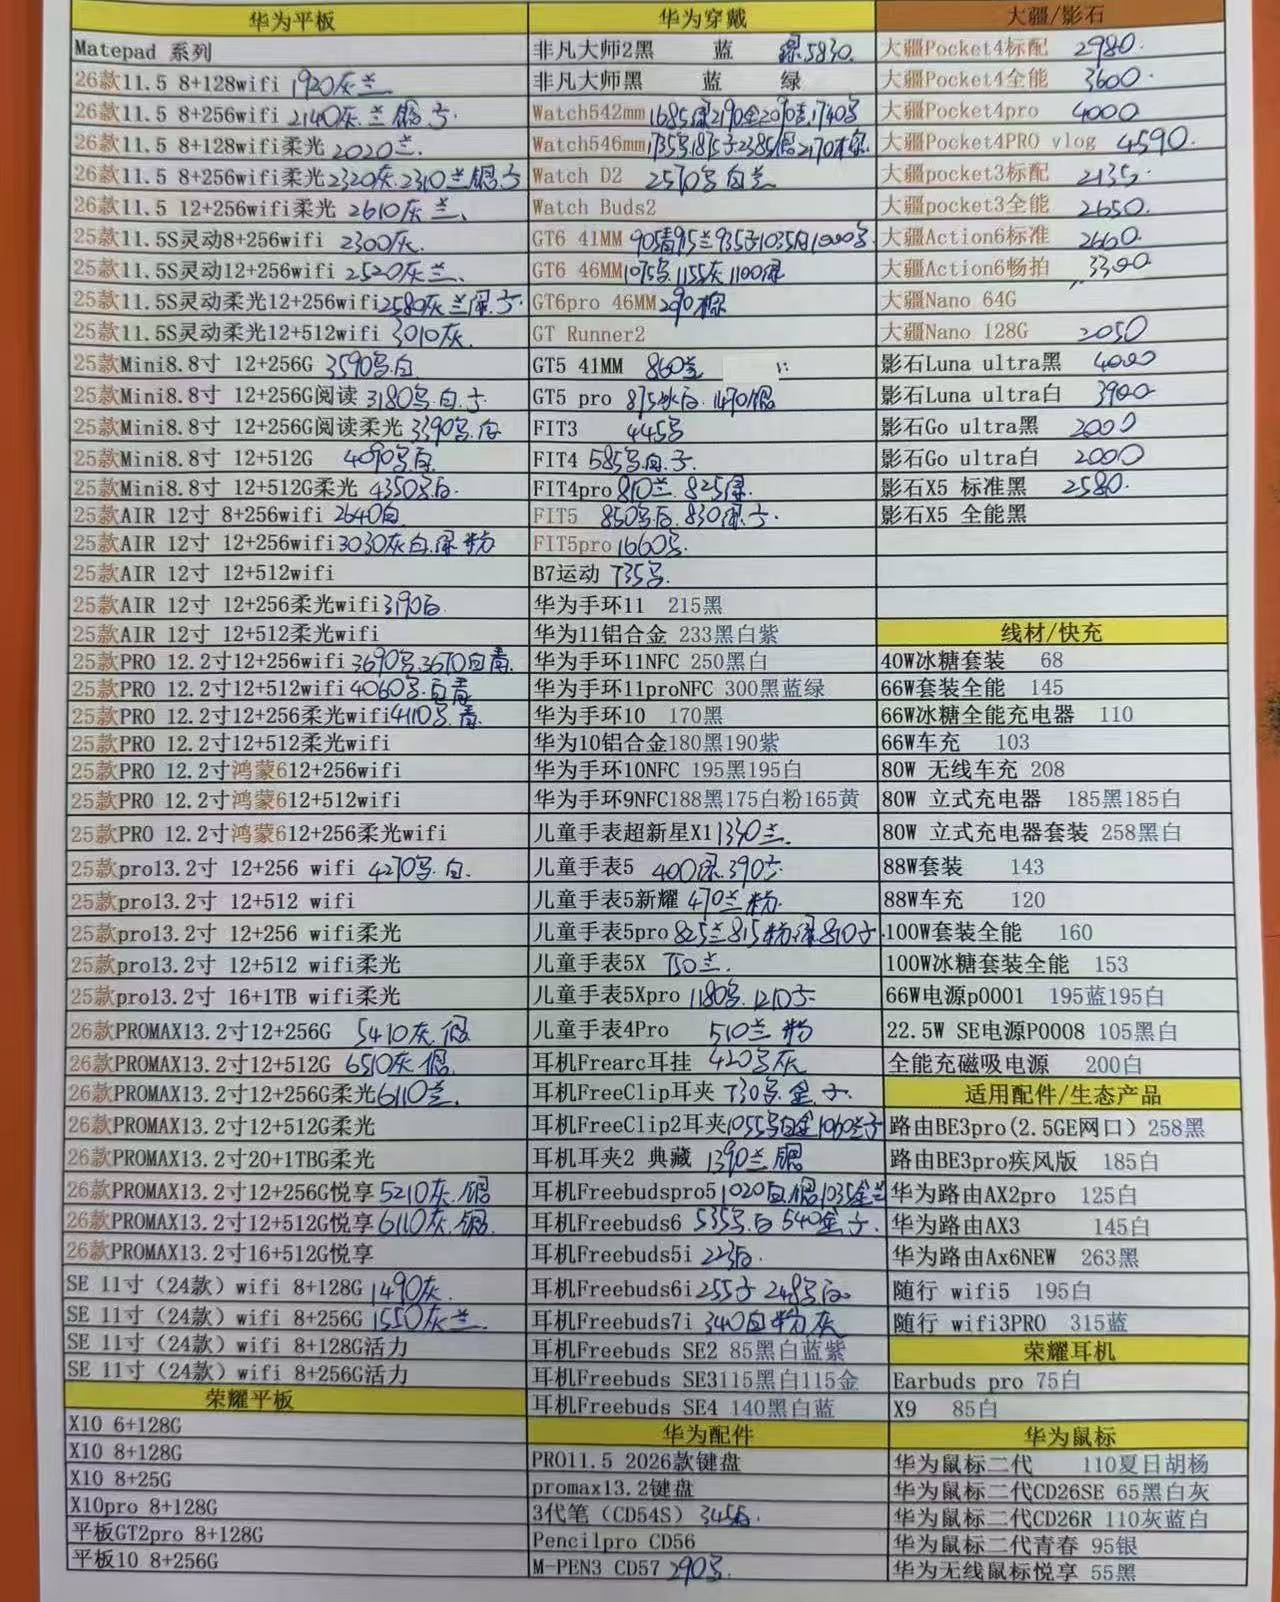 华为平板
Matepad 系列
26款11.5 8+128wifi 1920灰兰
26款11.5 8+256wifi 2140灰.兰.银
26款11.5 8+128wifi柔光 2020兰.
26款11.5 8+256wifi柔光 2320灰.2310兰银
26款11.5 12+256wifi柔光 2610灰兰、
25款11.5S灵动8+256wifi 2300灰.
25款11.5S灵动12+256wifi 2520灰兰、
25款11.5S灵动柔光12+256wifi 2580灰兰
25款11.5S灵动柔光12+512wifi 3010灰.
25款Mini8.8寸 12+256G 3590 白
25款Mini8.8寸 12+256G阅读 3180 白
25款Mini8.8寸 12+256G阅读柔光 3390 白
25款Mini8.8寸 12+512G 4090 白
25款Mini8.8寸 12+512G柔光 4350 白
25款AIR 12寸 8+256wifi 2640白
25款AIR 12寸 12+256wifi 3030灰白 粉
25款AIR 12寸 12+512wifi
25款AIR 12寸 12+256柔光wifi 3190白
25款AIR 12寸 12+512柔光wifi
25款PRO 12.2寸12+256wifi 3690 3670白青
25款PRO 12.2寸12+512wifi 4060 白青
25款PRO 12.2寸12+256柔光wifi 4110 青
25款PRO 12.2寸12+512柔光wifi
25款PRO 12.2寸鸿蒙612+256wifi
25款PRO 12.2寸鸿蒙612+512wifi
25款PRO 12.2寸鸿蒙612+256柔光wifi
25款pro13.2寸 12+256 wifi 4270 白.
25款pro13.2寸 12+512 wifi
25款pro13.2寸 12+256 wifi柔光
25款pro13.2寸 12+512 wifi柔光
25款pro13.2寸 16+1TB wifi柔光
26款PROMAX13.2寸12+256G 5410灰.银
26款PROMAX13.2寸12+512G 6510灰 银
26款PROMAX13.2寸12+256G柔光6110兰.
26款PROMAX13.2寸12+512G柔光
26款PROMAX13.2寸20+1TBG柔光
26款PROMAX13.2寸12+256G悦享 5210灰.银
26款PROMAX13.2寸12+512G悦享 6110灰.银
26款PROMAX13.2寸16+512G悦享
SE 11寸（24款）wifi 8+128G 1490灰.
SE 11寸（24款）wifi 8+256G 1550灰兰.
SE 11寸（24款）wifi 8+128G活力
SE 11寸（24款）wifi 8+256G活力
荣耀平板
X10 6+128G
X10 8+128G
X10 8+25G
X10pro 8+128G
平板GT2pro 8+128G
平板10 8+256G
华为穿戴
非凡大师2黑 蓝 绿5830.
非凡大师黑 蓝 绿
Watch542mm 1685 2190金2090 1740
Watch546mm 1735 1875 2385银2170
Watch D2 2570 白兰
Watch Buds2
GT6 41MM 905青915兰935 1035白
GT6 46MM 1075 1155灰1100
GT6pro 46MM 棕
GT Runner2
GT5 41MM 860
GT5 pro 875 白.1470银
FIT3 445
FIT4 585 白
FIT4pro 810兰.825
FIT5 850 白.830
FIT5pro 1660
B7运动 735
华为手环11 215黑
华为11铝合金 233黑白紫
华为手环11NFC 250黑白
华为手环11proNFC 300黑蓝绿
华为手环10 170黑
华为10铝合金180黑190紫
华为手环10NFC 195黑195白
华为手环9NFC188黑175白粉165黄
儿童手表超新星X1 1330兰.
儿童手表5 400 .390
儿童手表5新耀 470兰粉.
儿童手表5pro 825兰815粉 810
儿童手表5X 750兰.
儿童手表5Xpro 1180 .1210
儿童手表4Pro 510兰 粉
耳机Frearc耳挂 420 灰
耳机FreeClip耳夹 730 金
耳机FreeClip2耳夹1055 白金1060兰
耳机耳夹2 典藏 1390兰 银
耳机Freebudspro5 1020白.银1035金兰
耳机Freebuds6 535 白 540金
耳机Freebuds5i 223白.
耳机Freebuds6i 255 248 白
耳机Freebuds7i 340白粉灰
耳机Freebuds SE2 85黑白蓝紫
耳机Freebuds SE3115黑白115金
耳机Freebuds SE4 140黑白蓝
华为配件
PRO11.5 2026款键盘
promax13.2键盘
3代笔（CD54S）345白.
Pencilpro CD56
M-PEN3 CD57 290
大疆/影石
大疆Pocket4标配 2980.
大疆Pocket4全能 3600.
大疆Pocket4pro 4000
大疆Pocket4PRO vlog 4590.
大疆pocket3标配 2135.
大疆pocket3全能 2650.
大疆Action6标准 2660.
大疆Action6畅拍 3300
大疆Nano 64G
大疆Nano 128G 2050
影石Luna ultra黑 4000
影石Luna ultra白 3900
影石Go ultra黑 2000
影石Go ultra白 2000
影石X5 标准黑 2580.
影石X5 全能黑
线材/快充
40W冰糖套装 68
66W套装全能 145
66W冰糖全能充电器 110
66W车充 103
80W 无线车充 208
80W 立式充电器 185黑185白
80W 立式充电器套装 258黑白
88W套装 143
88W车充 120
100W套装全能 160
100W冰糖套装全能 153
66W电源p0001 195蓝195白
22.5W SE电源P0008 105黑白
全能充磁吸电源 200白
适用配件/生态产品
路由BE3pro(2.5GE网口）258黑
路由BE3pro疾风版 185白
华为路由AX2pro 125白
华为路由AX3 145白
华为路由Ax6NEW 263黑
随行 wifi5 195白
随行 wifi3PRO 315蓝
荣耀耳机
Earbuds pro 75白
X9 85白
华为鼠标
华为鼠标二代 110夏日胡杨
华为鼠标二代CD26SE 65黑白灰
华为鼠标二代CD26R 110灰蓝白
华为鼠标二代青春 95银
华为无线鼠标悦享 55黑